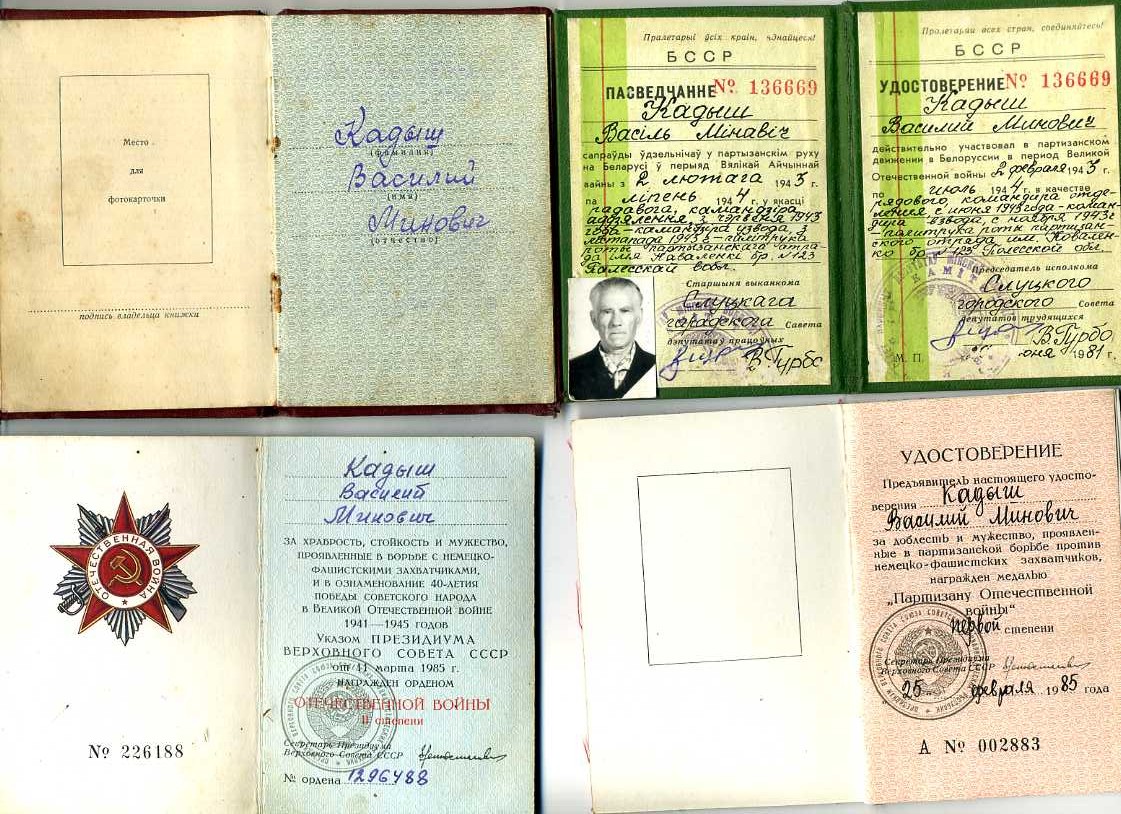 Место
для
фотокарточки
подпись владельца книжки
Кадыш
(фамилия)
Василий
(имя)
Минович
(отчество)
Пралетарыі ўсіх краін, яднайцеся!
БССР
ПАСВЕДЧАННЕ № 136669
Кадыш
Васіль Мінавіч
сапраўды ўдзельнічаў у партызанскім руху
на Беларусі ў перыяд Вялікай Айчыннай
вайны з 2 лютага 1943 г.
па ліпень 1944 г. у якасці
радавога, камандзіра
аддзялення, з чэрвеня 1943
года - камандзіра узвода, з
лістапада 1943 г - палітрука
роты партызанскага атра-
да імя Каваленкі бр. № 123
Палесскай вобл.
Старшыня выканкома
Слуцкага
гарадскога Савета
дэпутатаў працоўных
В. Гурбо
Пролетарии всех стран, соединяйтесь!
БССР
УДОСТОВЕРЕНИЕ № 136669
Кадыш
Василий Минович
действительно участвовал в партизанском
движении в Белоруссии в период Великой
Отечественной войны с 2 февраля 1943 г.
по июль 1944 г. в качестве
рядового, командира отде-
ления, с июня 1943 года - коман-
дира взвода, с ноября 1943 г
- политрука роты партизан-
ского отряда им. Ковален-
ко бр. № 123 Полесской обл.
Председатель исполкома
Слуцкого
городского Совета
депутатов трудящихся
В. Гурбо
М. П. 1981 г.
ОТЕЧЕСТВЕННАЯ ВОЙНА
№ 226188
Кадыш
Василий
Минович
ЗА ХРАБРОСТЬ, СТОЙКОСТЬ И МУЖЕСТВО,
ПРОЯВЛЕННЫЕ В БОРЬБЕ С НЕМЕЦКО-
ФАШИСТСКИМИ ЗАХВАТЧИКАМИ,
И В ОЗНАМЕНОВАНИЕ 40-ЛЕТИЯ
ПОБЕДЫ СОВЕТСКОГО НАРОДА
В ВЕЛИКОЙ ОТЕЧЕСТВЕННОЙ ВОЙНЕ
1941—1945 ГОДОВ
УКАЗОМ ПРЕЗИДИУМА
ВЕРХОВНОГО СОВЕТА СССР
от 11 марта 1985 г.
НАГРАЖДЕН ОРДЕНОМ
ОТЕЧЕСТВЕННОЙ ВОЙНЫ
II степени
Секретарь Президиума
Верховного Совета СССР
№ ордена 1296488
УДОСТОВЕРЕНИЕ
Предъявитель настоящего удосто-
верения Кадыш
Василий Минович
за доблесть и мужество, проявлен-
ные в партизанской борьбе против
немецко-фашистских захватчиков,
награжден медалью
„Партизану Отечественной
войны“
первой степени
Секретарь Президиума
Верховного Совета СССР
25 февраля 1985 года
А № 002883